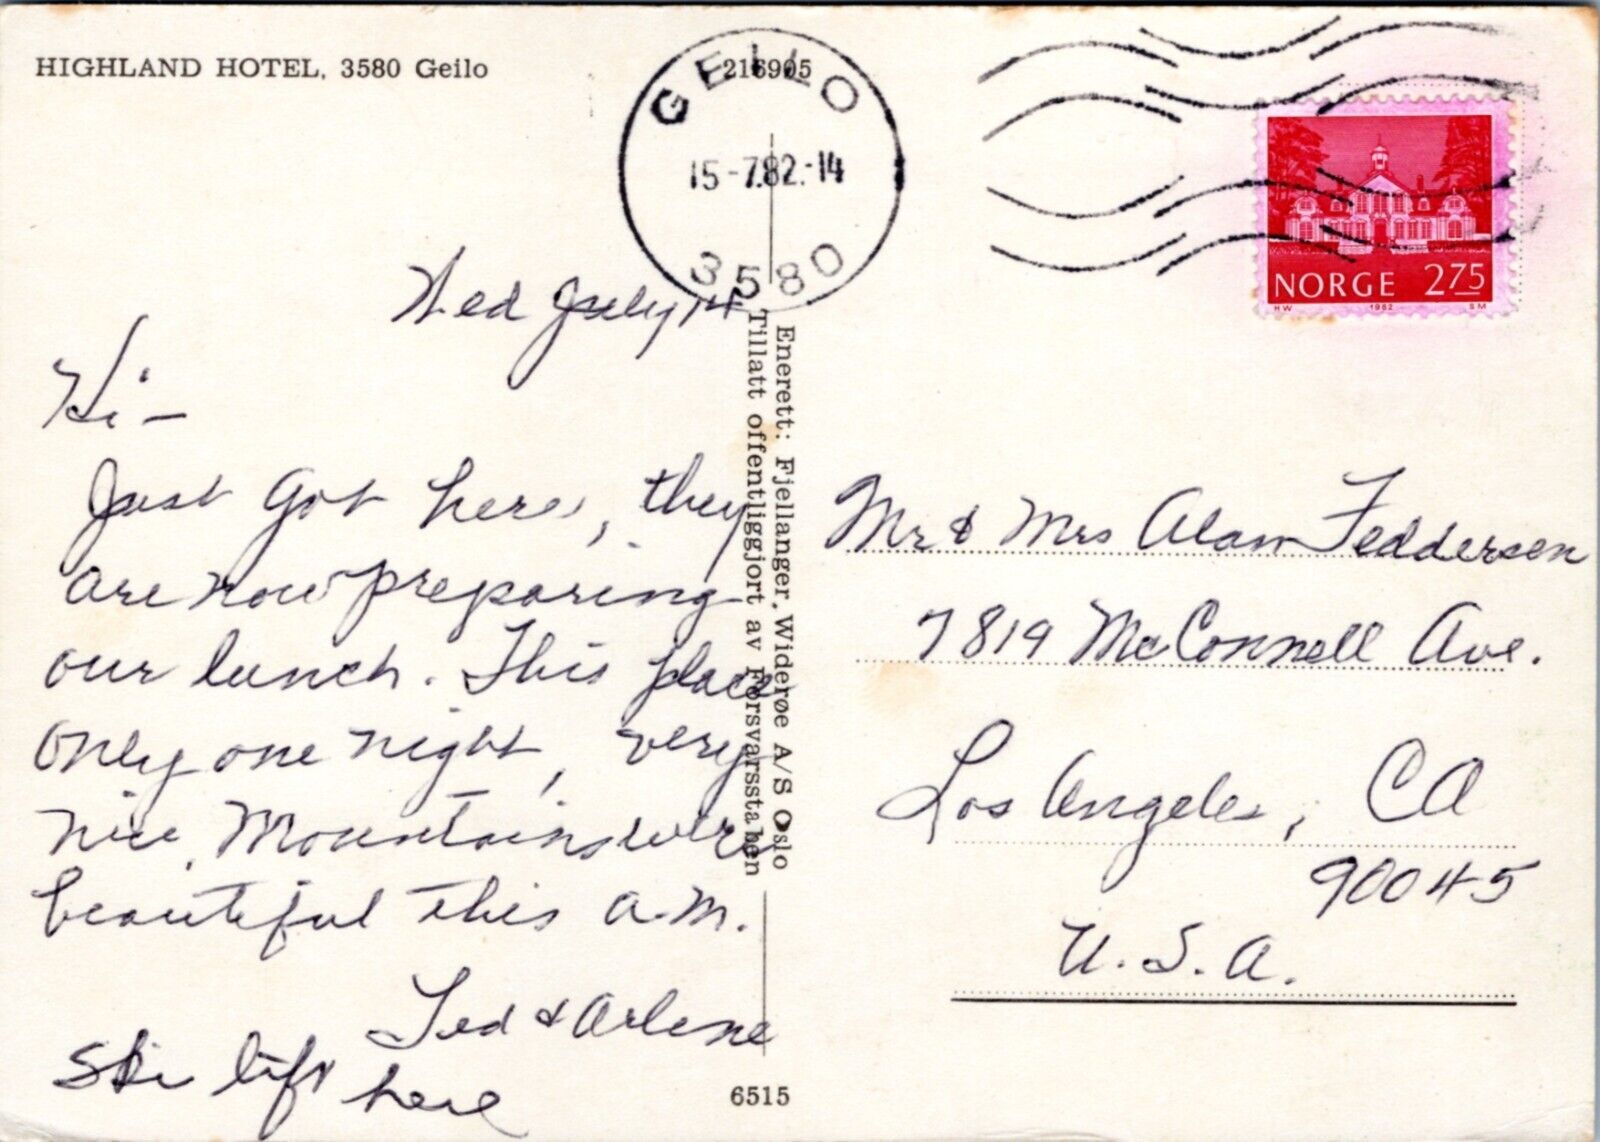 HIGHLAND HOTEL, 3580 Geilo
216905
GEILO
15-7.82.-14
3580
NORGE 275
HW 1982 SM
Wed July 14
Hi -
Just got here, they
are now preparing
our lunch. This place
only one night, very
nice, Mountains were
beautiful this a.m.
Ted & Arlene
Ski lift here
Enerett: Fjellanger, Widerøe A/S Oslo
Tillatt offentliggjort av Forsvarsstaben
6515
Mr & Mrs Alan Feddersen
7819 McConnell Ave.
Los Angeles, CA
90045
U.S.A.